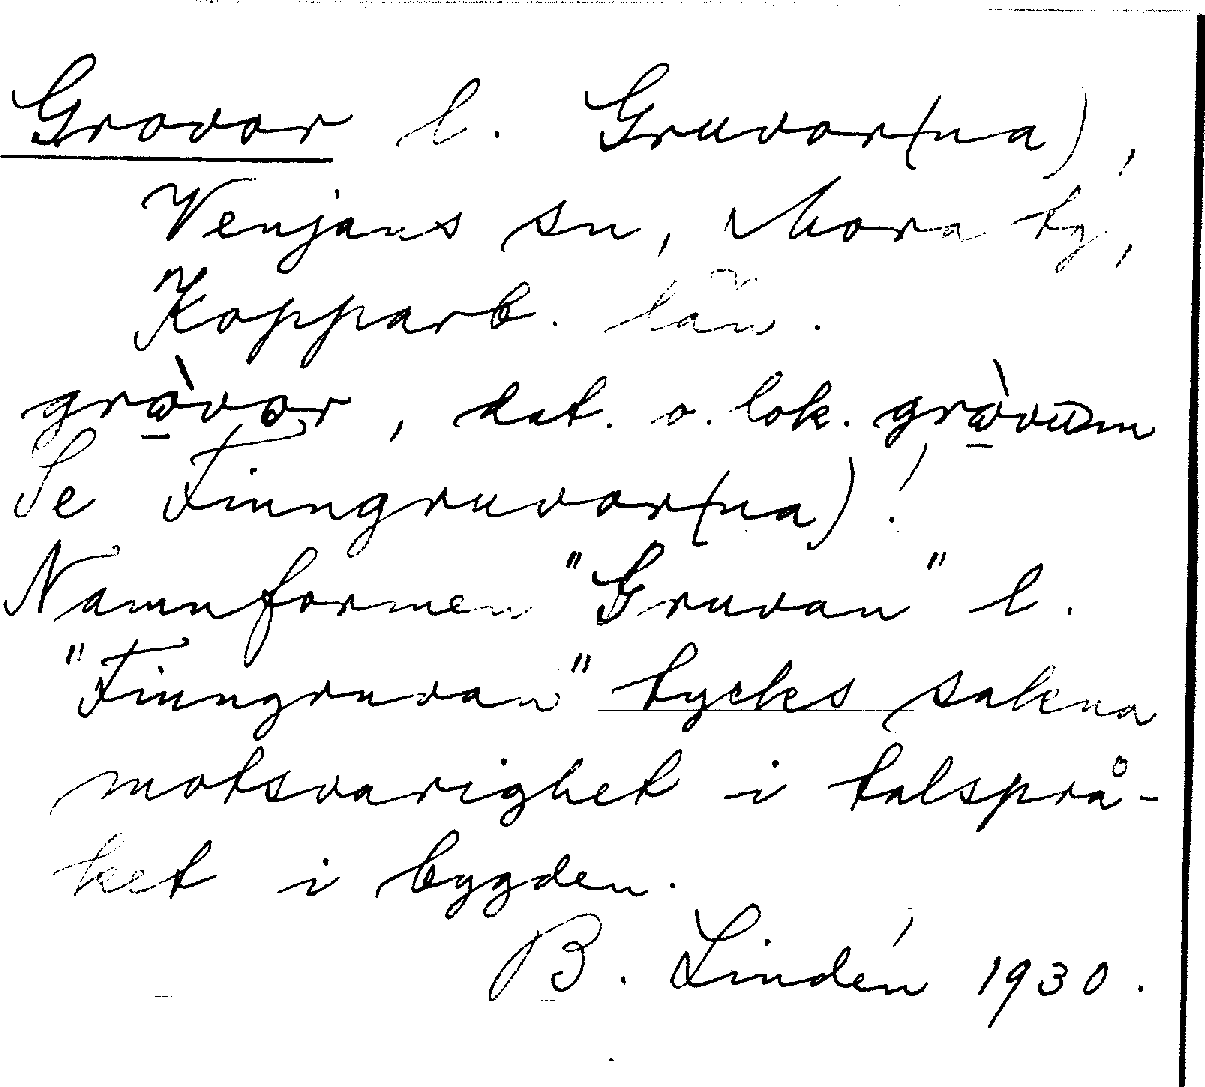 Grovor l. Gruvor(na),
Venjans sn, Mora ty,
Kopparb. län.
grò̱vor, dat. o. lok. grò̱vum
Se Finngruvor(na)!
Namnformen "Gruvan" l.
"Finngruvan" tycks sakna
motsvarighet i talsprå-
ket i bygden.
B. Lindén 1930.